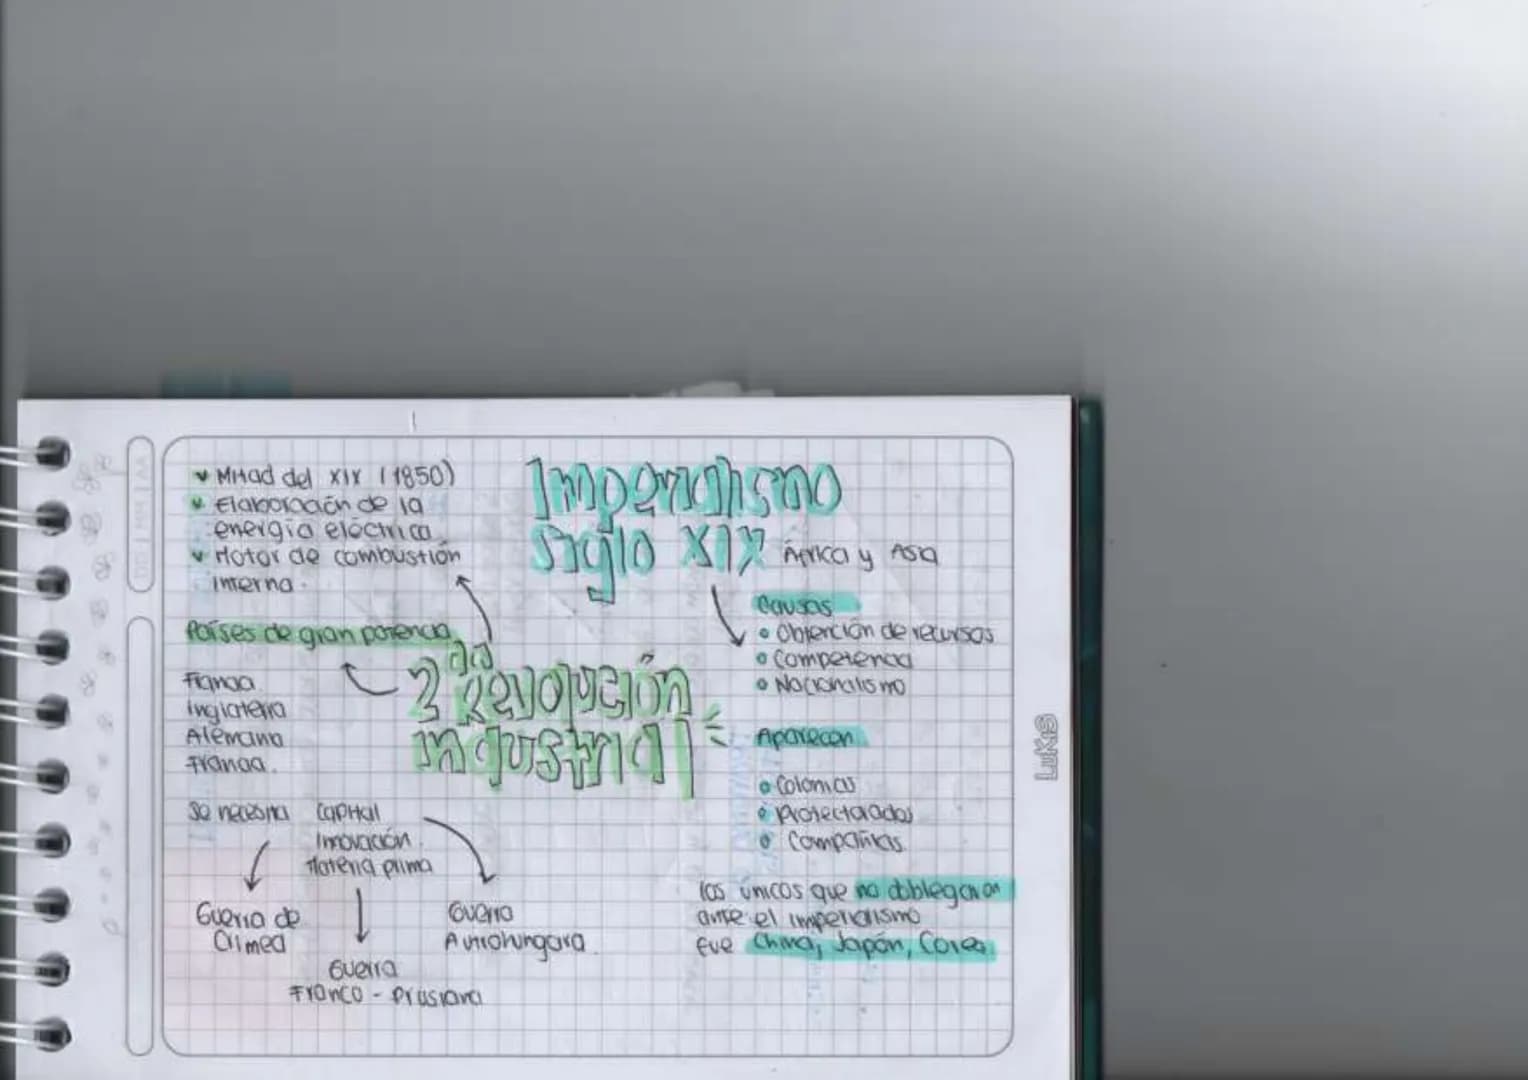 ✓ Mitad del XIX (1850)
✓ Elaboración de la
energía eléctrica
✓ Motor de combustión
interna.
Países de gran potencia
Francia
Inglaterra
Alemania
Francia.
2da Revolución
industrial
Se necesita
Capital
Innovación.
Materia prima
Guerra de
Crimea
Guerra
Franco - Prusiana
Guerra
Autrohungara.
Imperialismo
siglo XIX
África y Asia
Causas
• Obtención de recursos
• Competencia
• Nacionalismo
Aparecen
• Colonias
• Protectorados
• Compañías.
los únicos que no doblegaron
ante el imperialismo
fue China, Japón, Corea.
LUKIS
DD | MM | AA